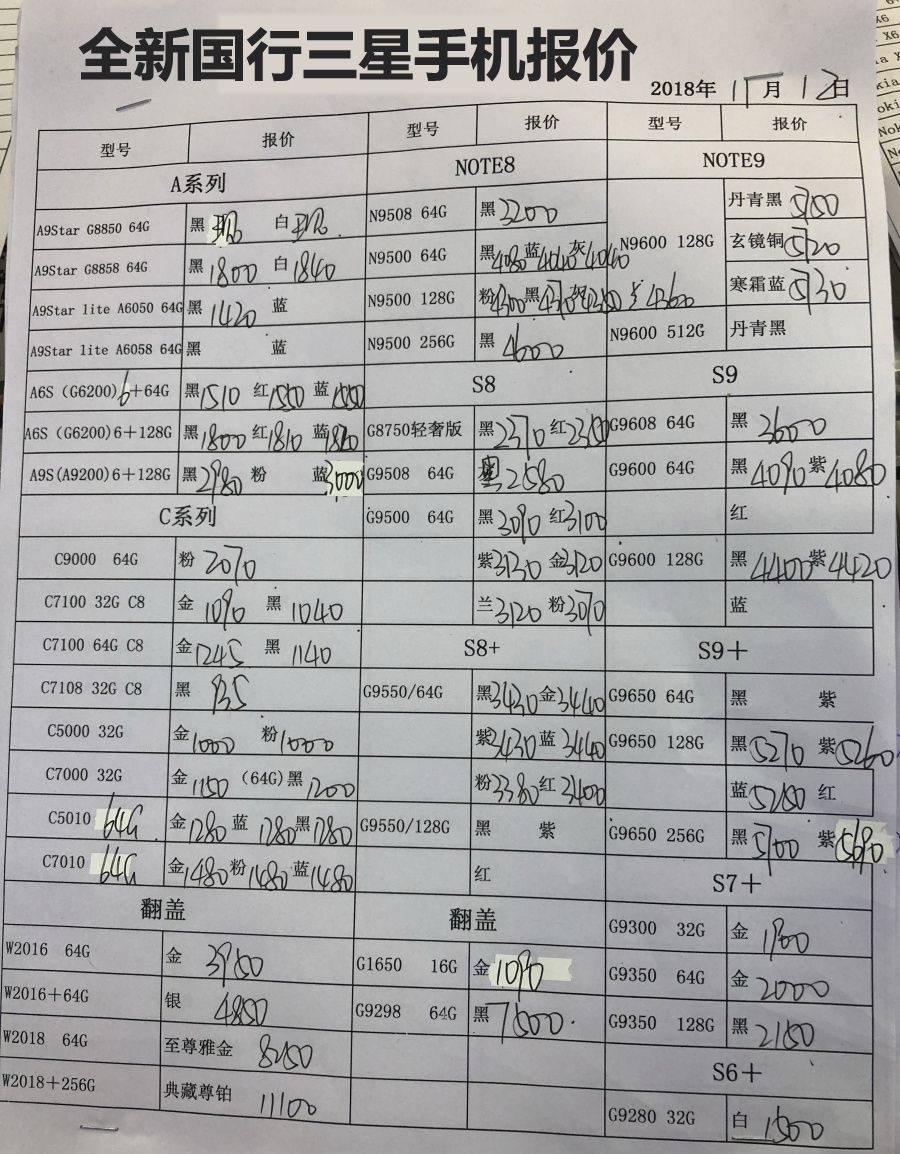 全新国行三星手机报价
2018年 11月 12日
型号 报价 型号 报价 型号 报价
A系列 NOTE8 NOTE9
A9Star G8850 64G 黑 白
N9508 64G 黑3200
N9600 128G 丹青黑5150
玄镜铜5120
寒霜蓝5130
A9Star G8858 64G 黑1800 白1840
N9500 64G 黑4080 蓝4040 灰4040
A9Star lite A6050 64G 黑1420 蓝
N9500 128G 粉4300 黑4370 灰4350 4360
A9Star lite A6058 64G 黑 蓝
N9500 256G 黑4600
N9600 512G 丹青黑
S8 S9
A6S (G6200)6+64G 黑1510 红1550 蓝1550
A6S (G6200)6+128G 黑1800 红1810 蓝
G8750轻奢版 黑2370 红2350
G9608 64G 黑3600
A9S(A9200)6+128G 黑2980 粉 蓝3000
G9508 64G 黑2580
G9600 64G 黑4090 紫4080
红
C系列
G9500 64G 黑3090 红3100
紫3130 金3120
兰3120 粉3070
G9600 128G 黑4400 紫4420
蓝
C9000 64G 粉2070
C7100 32G C8 金1090 黑1040
C7100 64G C8 金1245 黑1140
S8+ S9+
C7108 32G C8 黑935
G9550/64G 黑3430 金3440
紫3430 蓝3440
粉3380 红3400
G9650 64G 黑 紫
C5000 32G 金1000 粉1000
G9650 128G 黑5270 紫5260
蓝5250 红
C7000 32G 金1150 (64G)黑1200
C5010 64G 金1280 蓝1280 黑1280
G9550/128G 黑 紫
红
G9650 256G 黑5700 紫5690
C7010 64G 金1480 粉1480 蓝1480
S7+
翻盖 翻盖
G9300 32G 金1900
W2016 64G 金3950
G1650 16G 金1090
G9350 64G 金2000
W2016+64G 银4850
G9298 64G 黑7500
G9350 128G 黑2150
W2018 64G 至尊雅金8250
S6+
W2018+256G 典藏尊铂11100
G9280 32G 白1500